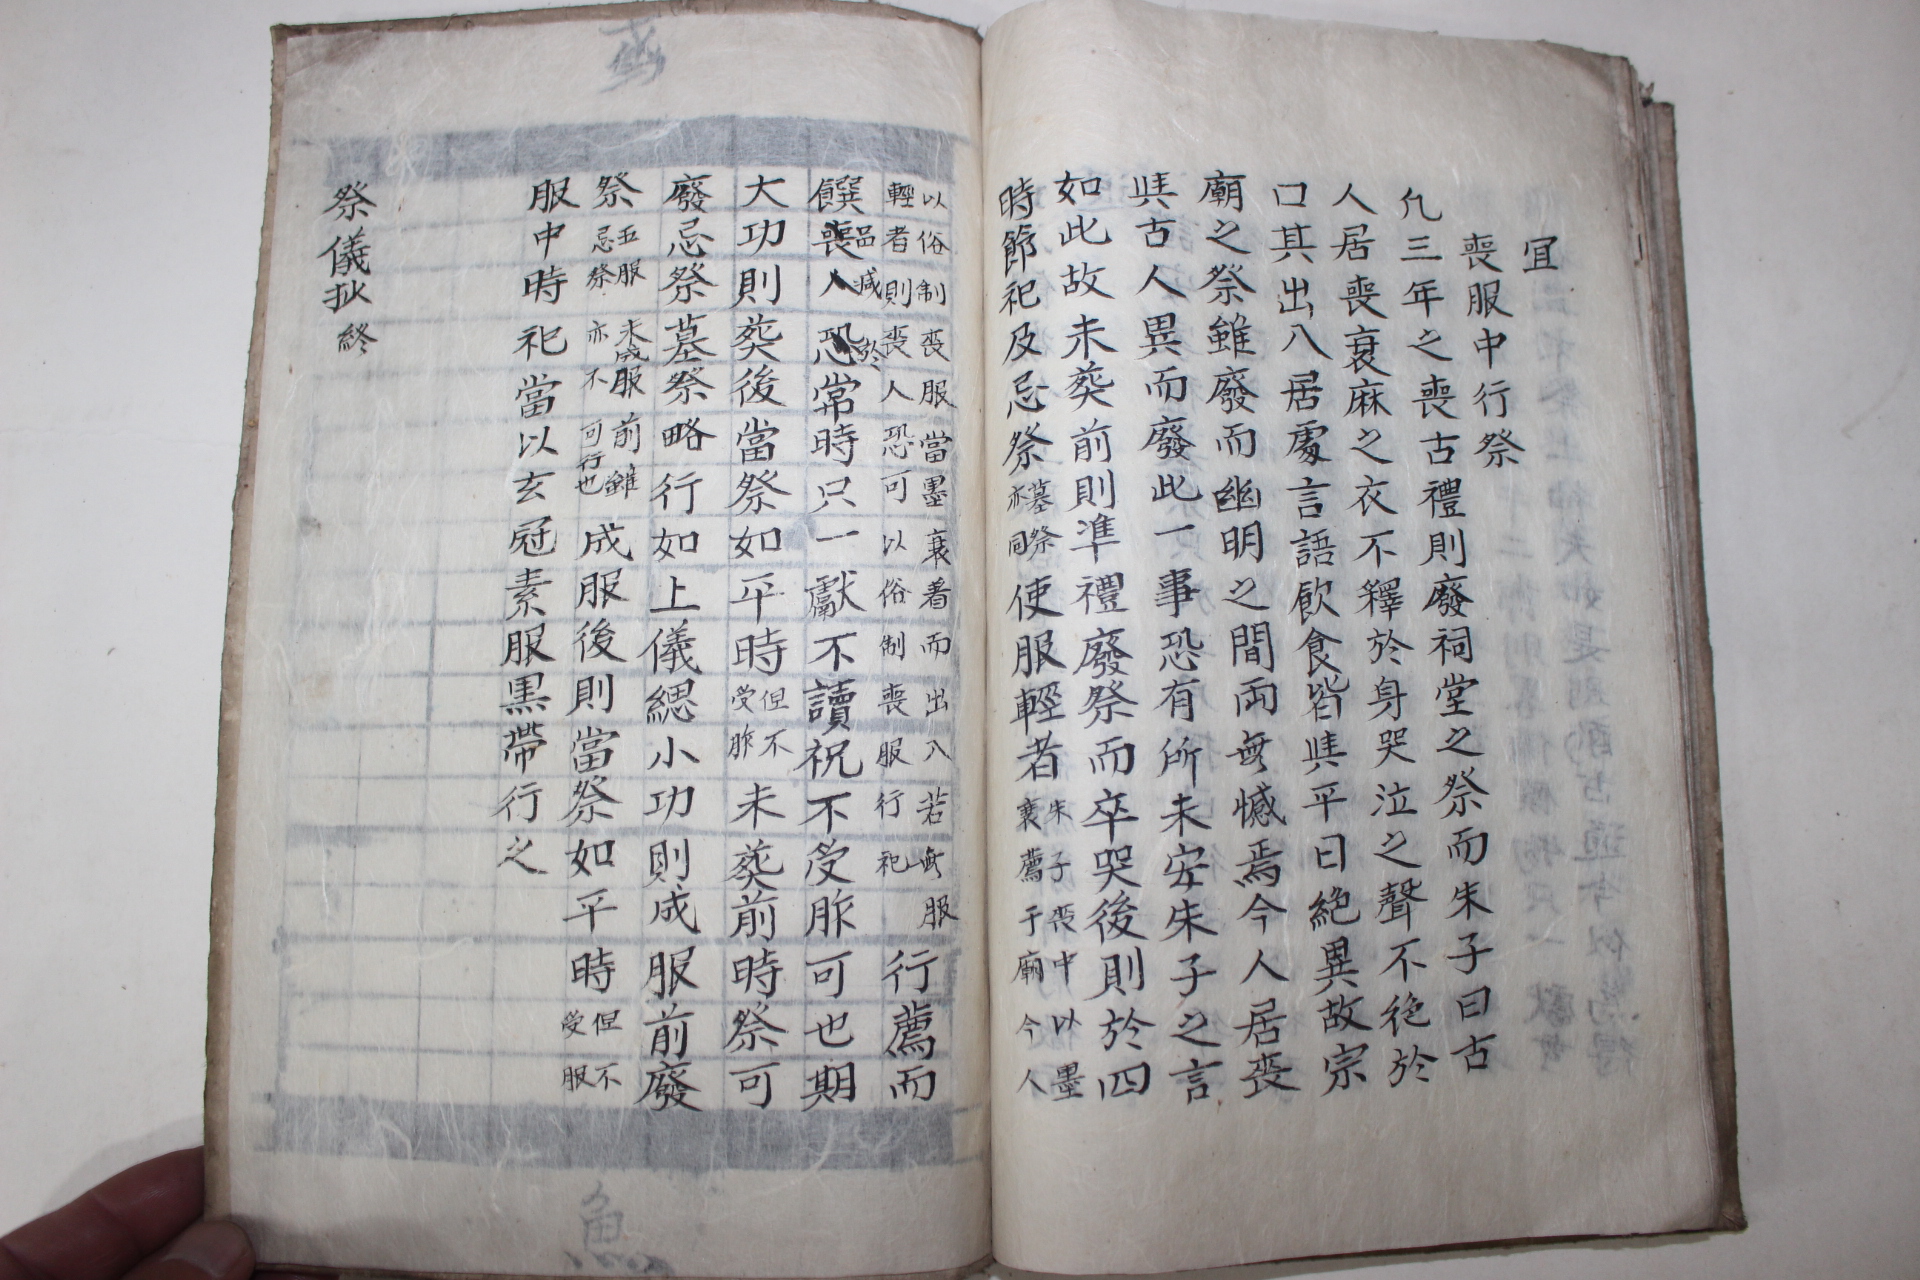 宜
喪服中行祭
凡三年之喪古禮則廢祠堂之祭而朱子曰古
人居喪衰麻之衣不釋於身哭泣之聲不絶於
口其出入居處言語飲食皆與平日絶異故宗
廟之祭雖廢而幽明之間兩無憾焉今人居喪
與古人異而廢此一事恐有所未安朱子之言
如此故未葬前則準禮廢祭而卒哭後則於四
時節祀及忌祭墓祭亦同使服輕者朱子喪中以墨衰薦于廟今人
以俗制喪服當墨衰着而出入若無服輕者則喪人恐可以俗制喪服行祀行薦而
饌品減於常時只一獻不讀祝不受胙可也期
大功則葬後當祭如平時但不受胙未葬前時祭可
廢忌祭墓祭略行如上儀緦小功則成服前廢
祭五服未成服前雖忌祭亦不可行也成服後則當祭如平時但不受服
服中時祀當以玄冠素服黑帶行之
祭儀抄終